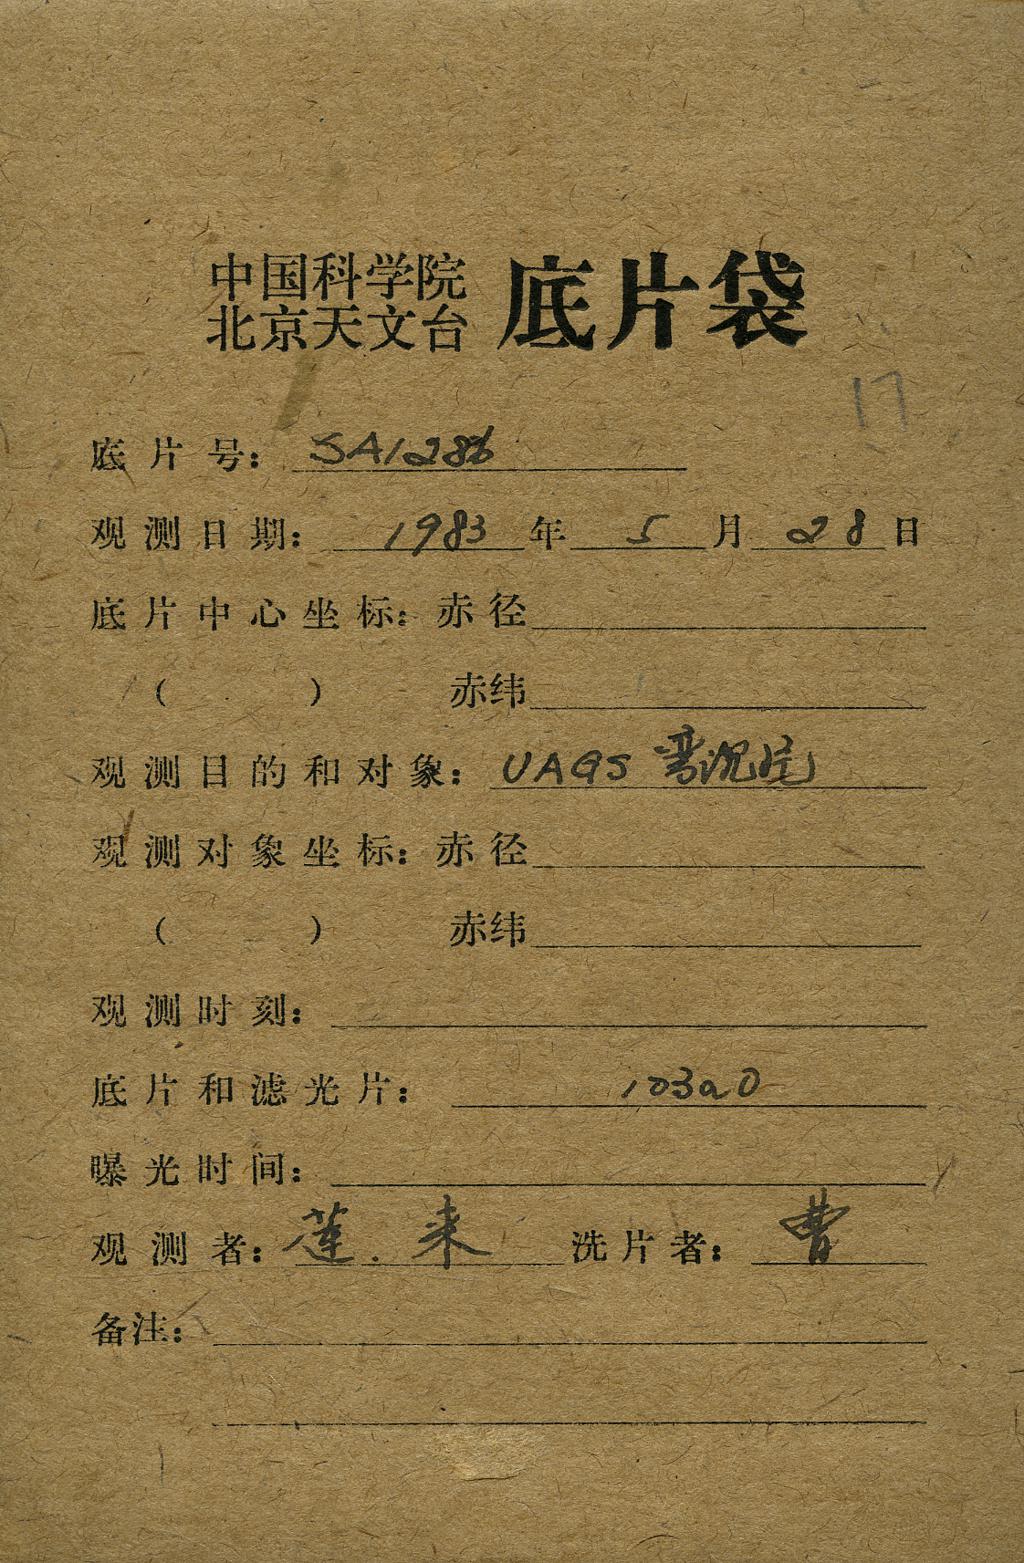 中国科学院
北京天文台 底片袋
17
底片号: SA1286
观测日期: 1983年 5月 28日
底片中心坐标: 赤径
( ) 赤纬
观测目的和对象: UAGS 弯沉底
观测对象坐标: 赤径
( ) 赤纬
观测时刻:
底片和滤光片: 103aO
曝光时间:
观测者: 莲.来 洗片者: 曹
备注: